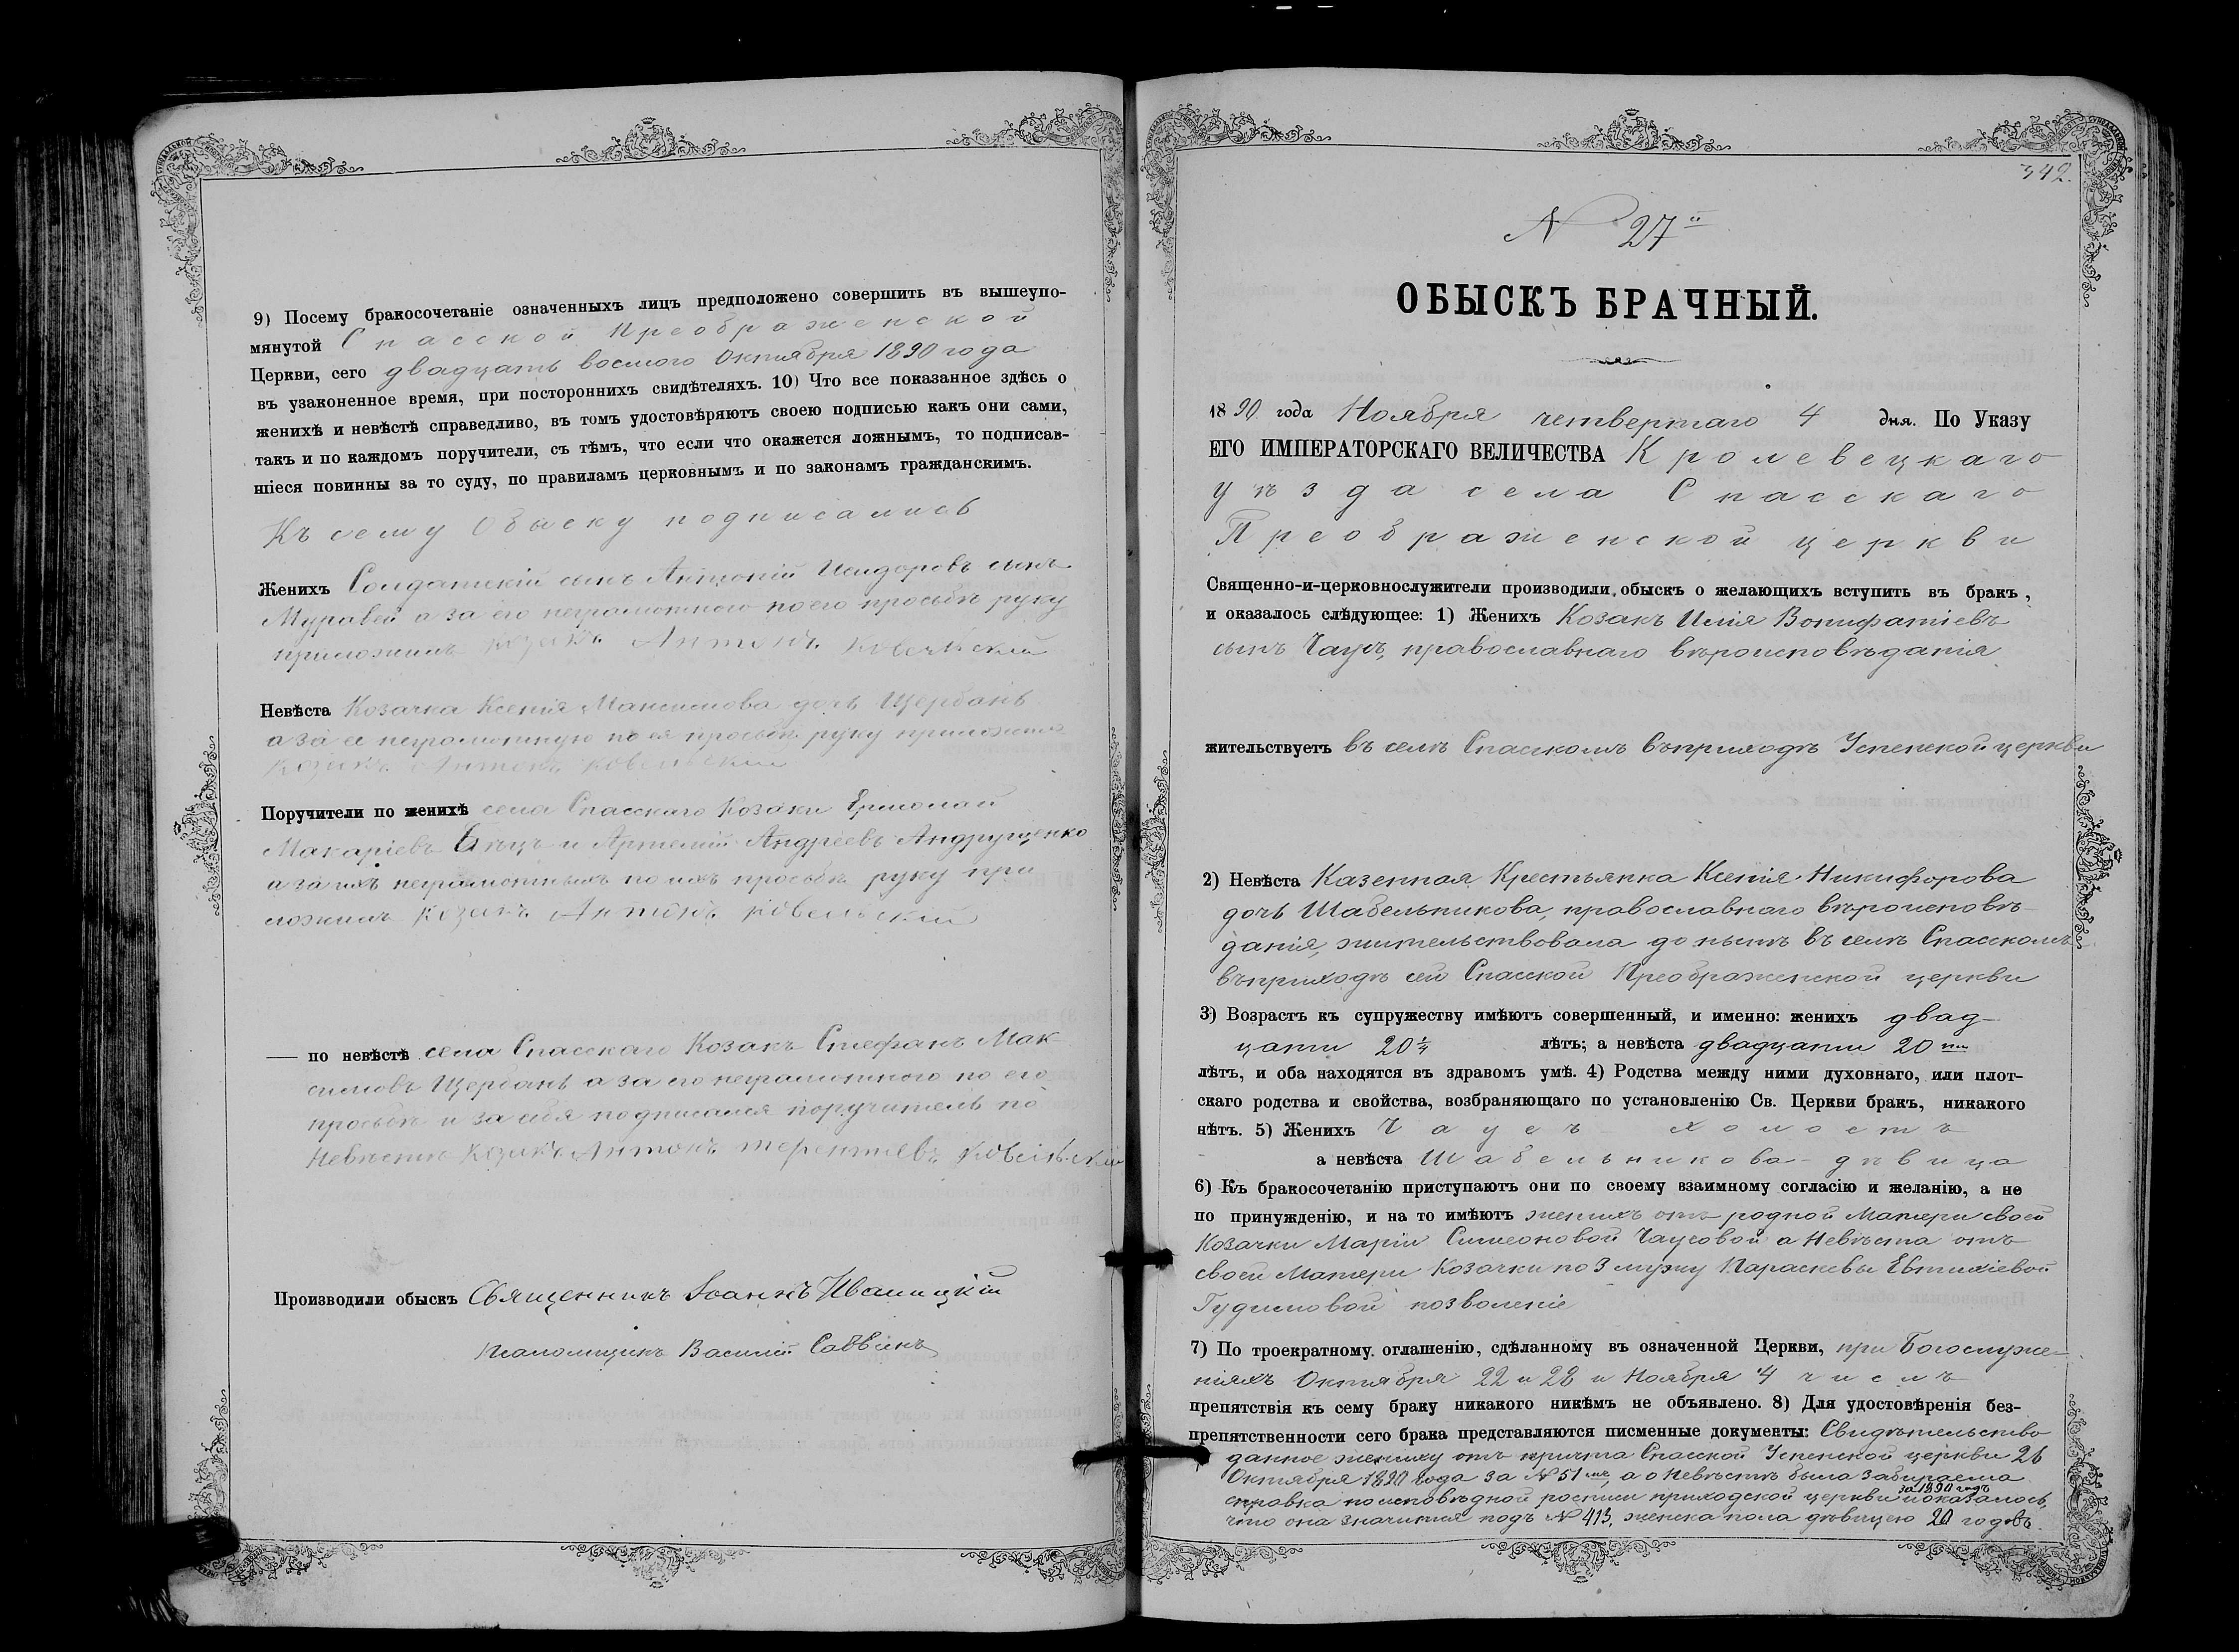 9) Посему бракосочетаніе означенныхъ лицъ предположено совершить въ вышеупо-
мянутой Спасской Преображенской
Церкви, сего двадцать восмого Октября 1890 года
въ узаконенное время, при постороннихъ свидѣтеляхъ. 10) Что все показанное здѣсь о
женихѣ и невѣстѣ справедливо, въ томъ удостовѣряютъ своею подписью какъ они сами,
такъ и по каждомъ поручители, съ тѣмъ, что если что окажется ложнымъ, то подписав-
шіеся повинны за то суду, по правиламъ церковнымъ и по законамъ гражданскимъ.
Къ сему Обыску подписались
Женихъ Солдатскій сынъ Антоній Исидоровъ сынъ
Муравей а за его неграмотного по его просьбѣ руку
приложилъ козакъ Антонъ Ковельскій
Невѣста Козачка Ксенія Максимова дочь Щербань
а за ее неграмотную по ея просьбѣ руку приложилъ
козакъ Антонъ Ковельскій
Поручители по женихѣ села Спасскаго Козаки Ермолай
Макаріевъ и Артемій Андреевъ Андрущенко
а за ихъ неграмотныхъ по ихъ просьбѣ руку при
ложилъ козакъ Антонъ Ковельскій
— по невѣстѣ села Спасскаго Козакъ Стефанъ Мак
симовъ Щербань а за его неграмотного по его
просьбѣ и за себя подписался поручитель по
Невѣстѣ козакъ Антонъ Терентіевъ Ковельскій
Производили обыскъ Священникъ Іоаннъ Иваницкій
Псаломщикъ Василій Саввинъ
342.
N 27й
ОБЫСКЪ БРАЧНЫЙ.
1890 года Ноября четвертаго 4 дня. По Указу
ЕГО ИМПЕРАТОРСКАГО ВЕЛИЧЕСТВА Кролевецкаго
уѣзда села Спасскаго
Преображенской церкви
Священно-и-церковнослужители производили обыскъ о желающихъ вступить въ бракъ,
и оказалось слѣдующее: 1) Женихъ Козакъ Илія Вонифатіевъ
сынъ Чаусъ, православнаго вѣроисповѣданія
жительствуетъ въ селѣ Спасскомъ въ приходѣ Успенской церкви
2) Невѣста Казенная Крестьянка Ксенія Никифорова
дочь Шабельникова, православнаго вѣроисповѣ-
данія, жительствовала до нынѣ въ селѣ Спасскомъ
въ приходѣ сей Спасской Преображенской церкви
3) Возрастъ къ супружеству имѣютъ совершенный, и именно: женихъ двад-
цати 20¼ лѣтъ; а невѣста двадцати 20 ти
лѣтъ, и оба находятся въ здравомъ умѣ. 4) Родства между ними духовнаго, или плот-
скаго родства и свойства, возбраняющаго по установленію Св. Церкви бракъ, никакого
нѣтъ. 5) Женихъ Чаусъ холостъ
а невѣста Шабельникова - дѣвица
6) Къ бракосочетанію приступаютъ они по своему взаимному согласію и желанію, а не
по принужденію, и на то имѣютъ женихъ отъ родной Матери своей
Козачки Маріи Симеоновой Чаусовой а Невѣста отъ
своей Матери Козачки по 3 мужу Параскевы Евтихіевой
Гудимовой позволеніе
7) По троекратному оглашенію, сдѣланному въ означенной Церкви, при Богослуже-
ніяхъ Октября 22 и 28 и Ноября 4 числъ
препятствія къ сему браку никакого никѣмъ не объявлено. 8) Для удостовѣренія без-
препятственности сего брака представляются писменные документы: Свидѣтельство
данное жениху отъ причта Спасской Успенской церкви 26
Октября 1890 года за N 51 мъ, а о Невѣстѣ была забираема
справка по исповѣдной росписи приходской церкви за 1890 годъ и оказалось,
что она значится подъ N 413, женска пола дѣвицею 20 годовъ.